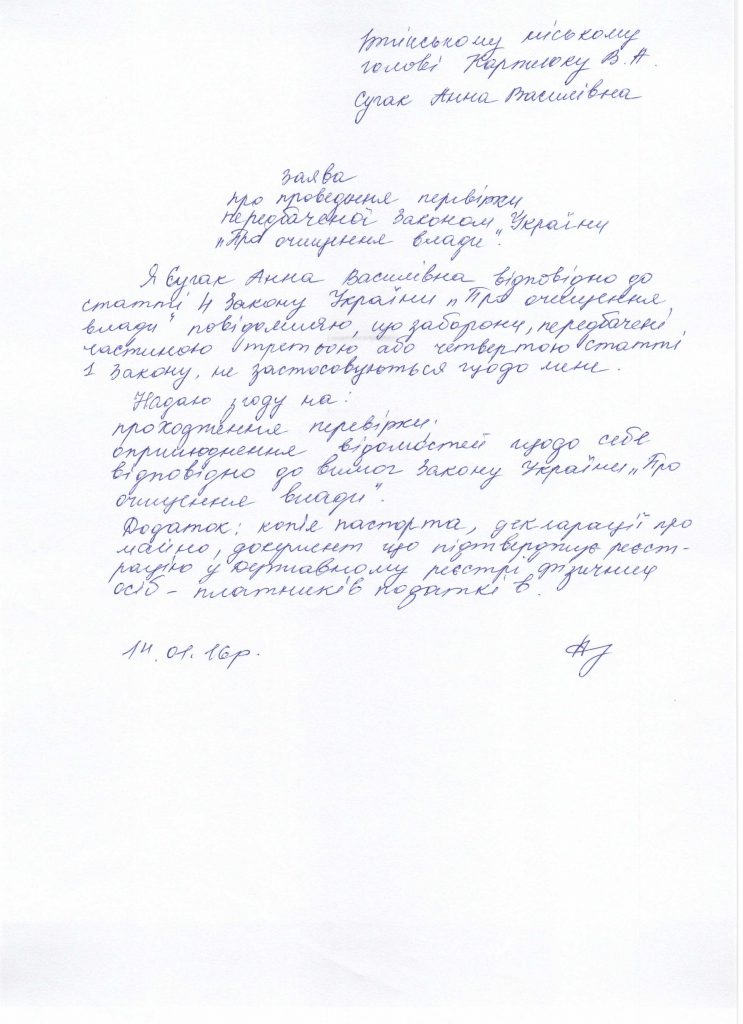 Ірпінському міському
голові Карплюку В.А.
Сугак Анна Василівна
Заява
про проведення перевірки
передбаченої Законом України
„Про очищення влади".
Я Сугак Анна Василівна відповідно до
статті 4 Закону України „Про очищення
влади" повідомляю, що заборони, передбачені
частиною третьою або четвертою статті
1 Закону, не застосовуються щодо мене.
Надаю згоду на:
проходження перевірки;
оприлюднення відомостей щодо себе
відповідно до вимог Закону України „Про
очищення влади".
Додаток: копія паспорта, декларації про
майно, документ що підтверджує реєст-
рацію у державному реєстрі фізичних
осіб - платників податків.
14.01.16р.